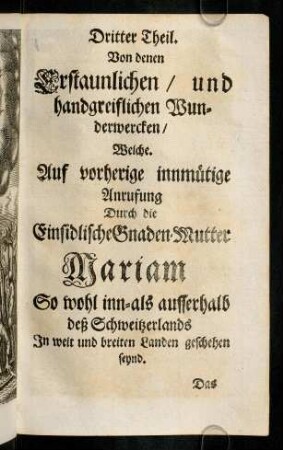 Dritter Theil.
Von denen
Erstaunlichen / und
handgreiflichen Wun-
derwercken /
Welche.
Auf vorherige innmütige
Anrufung
Durch die
Einsidlische Gnaden-Mutter
Mariam
So wohl inn-als ausserhalb
deß Schweitzerlands
In weit und breiten Landen geschehen
seynd.
Das